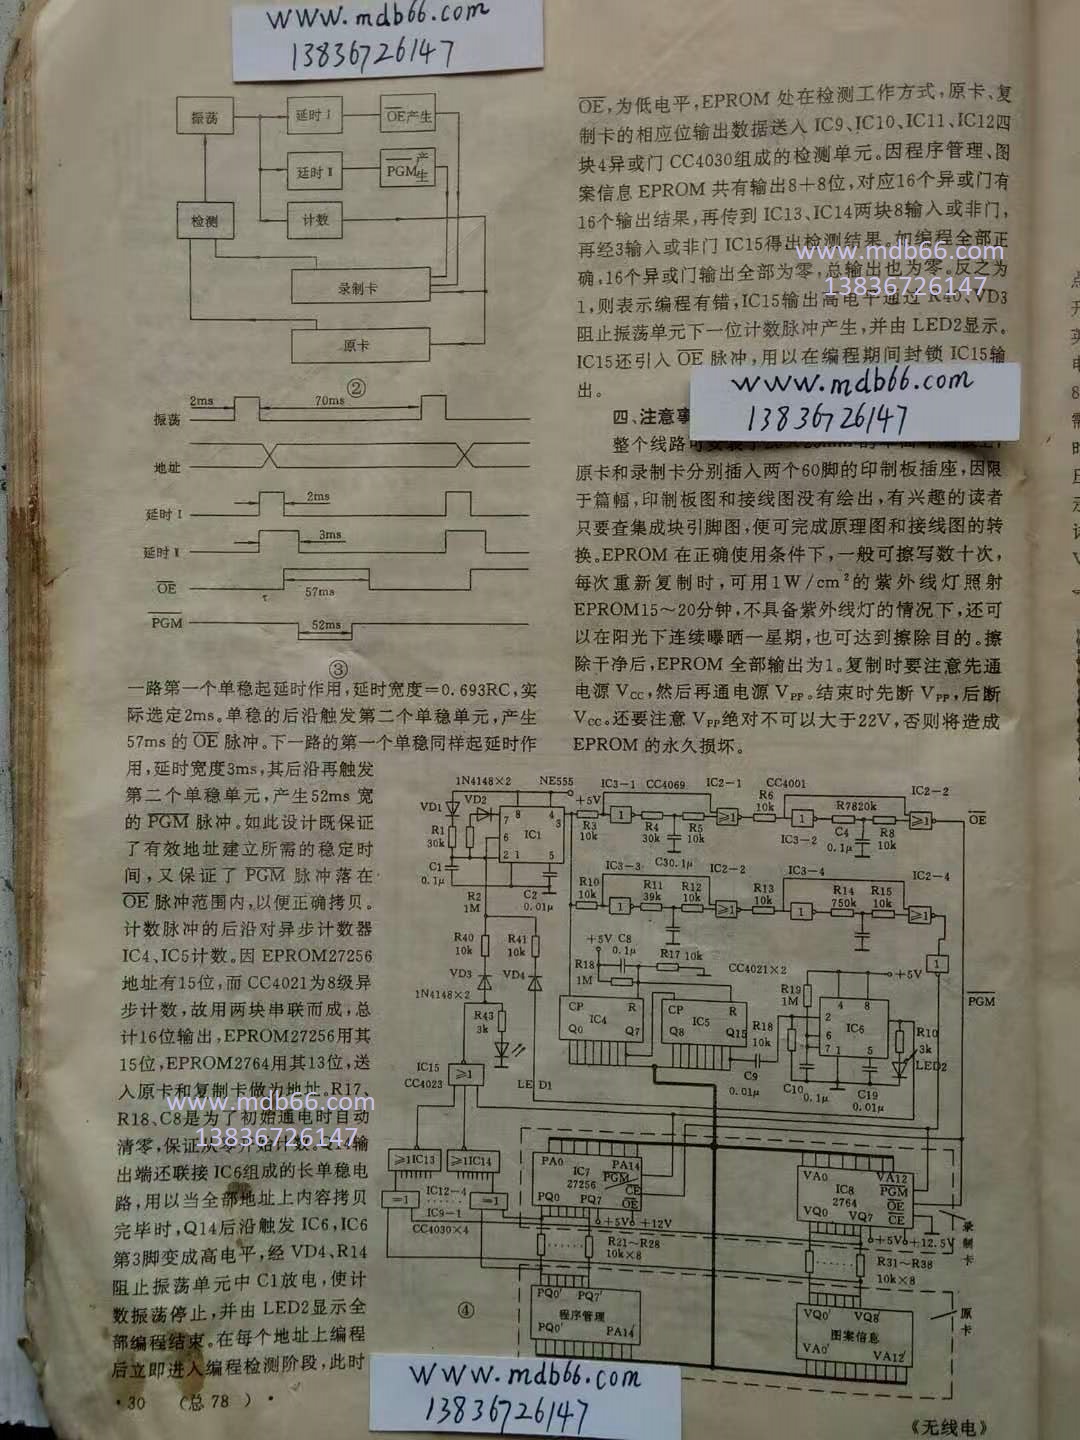 www.mdb66.com
13836726147
振荡
延时Ⅰ
OE产生
延时Ⅱ
PGM产生
检测
计数
录制卡
原卡
②
2ms
70ms
振荡
地址
延时Ⅰ
2ms
延时Ⅱ
3ms
OE
τ
57ms
PGM
52ms
③
一路第一个单稳起延时作用,延时宽度=0.693RC,实
际选定2ms。单稳的后沿触发第二个单稳单元,产生
57ms 的 OE 脉冲。下一路的第一个单稳同样起延时作
用,延时宽度3ms,其后沿再触发
第二个单稳单元,产生52ms 宽
的 PGM 脉冲。如此设计既保证
了有效地址建立所需的稳定时
间,又保证了 PGM 脉冲落在
OE 脉冲范围内,以便正确拷贝。
计数脉冲的后沿对异步计数器
IC4、IC5计数。因 EPROM27256
地址有15位,而 CC4021为8级异
步计数,故用两块串联而成,总
计16位输出,EPROM27256用其
15位,EPROM2764用其13位,送
入原卡和复制卡做为地址。R17、
www.mdb66.com
R18、C8是为了初始通电时自动
13836726147
清零,保证从零开始计数。Q14输
出端还联接 IC6组成的长单稳电
路,用以当全部地址上内容拷贝
完毕时,Q14后沿触发 IC6,IC6
第3脚变成高电平,经 VD4、R14
阻止振荡单元中 C1放电,使计
数振荡停止,并由 LED2显示全
部编程结束。在每个地址上编程
后立即进入编程检测阶段,此时
OE,为低电平,EPROM 处在检测工作方式,原卡、复
制卡的相应位输出数据送入 IC9、IC10、IC11、IC12四
块4异或门 CC4030组成的检测单元。因程序管理、图
案信息 EPROM 共有输出8+8位,对应16个异或门有
16个输出结果,再传到 IC13、IC14两块8输入或非门,
再经3输入或非门 IC15得出检测结果。如编程全部正
www.mdb66.com
确,16个异或门输出全部为零,总输出也为零。反之为
13836726147
1,则表示编程有错,IC15输出高电平通过 R40、VD3
阻止振荡单元下一位计数脉冲产生,并由 LED2显示。
IC15还引入 OE 脉冲,用以在编程期间封锁 IC15输
出。
www.mdb66.com
13836726147
四、注意事
整个线路可安装于
原卡和录制卡分别插入两个60脚的印制板插座,因限
于篇幅,印制板图和接线图没有绘出,有兴趣的读者
只要查集成块引脚图,便可完成原理图和接线图的转
换。EPROM 在正确使用条件下,一般可擦写数十次,
每次重新复制时,可用1W/cm²的紫外线灯照射
EPROM15～20分钟,不具备紫外线灯的情况下,还可
以在阳光下连续曝晒一星期,也可达到擦除目的。擦
除干净后,EPROM 全部输出为1。复制时要注意先通
电源 Vcc,然后再通电源 VPP。结束时先断 VPP,后断
Vcc。还要注意 VPP绝对不可以大于22V,否则将造成
EPROM 的永久损坏。
1N4148×2 NE555 IC3-1 CC4069 IC2-1 CC4001 IC2-2
VD1 VD2 +5V R6 10k R7820k OE
R1 30k IC1 R3 10k R4 30k R5 10k IC3-2 C4 0.1μ R8 10k
7 6 2 1 8 4 3 5
C1 0.1μ C2 0.01μ C30.1μ
IC3-3 IC2-2 IC3-4 IC2-4
R10 10k R11 39k R12 10k R13 10k R14 750k R15 10k
R2 1M
R40 10k R41 10k
+5V C8 0.1μ R17 10k
R18 1M CC4021×2 +5V
VD3 VD4 R19 1M PGM
1N4148×2
CP R IC4 Q0 Q7
CP R IC5 Q8 Q15
R18 10k IC6 4 8 2 6 7 1 5 R10 3k
R43 3k
IC15 CC4023 ≥1 LED1 LED2
C9 0.01μ C10 0.1μ C19 0.01μ
≥1IC13 ≥1IC14
=1 IC12-4 =1
IC9-1
CC4030×4
PA0 PA14 IC7 27256 PGM CE OE PQ0 PQ7
+5V +12V
VA0 VA12 IC8 2764 PGM OE CE VQ0 VQ7
+5V +12.5V
录制卡
R21～R28
10k×8
R31～R38
10k×8
PQ0′ PQ7′
程序管理
PQ0′ PA14′
VQ0′ VQ8′
图案信息
VA0′ VA12′
原卡
④
www.mdb66.com
13836726147
·30 (总 78 )·
《无线电》